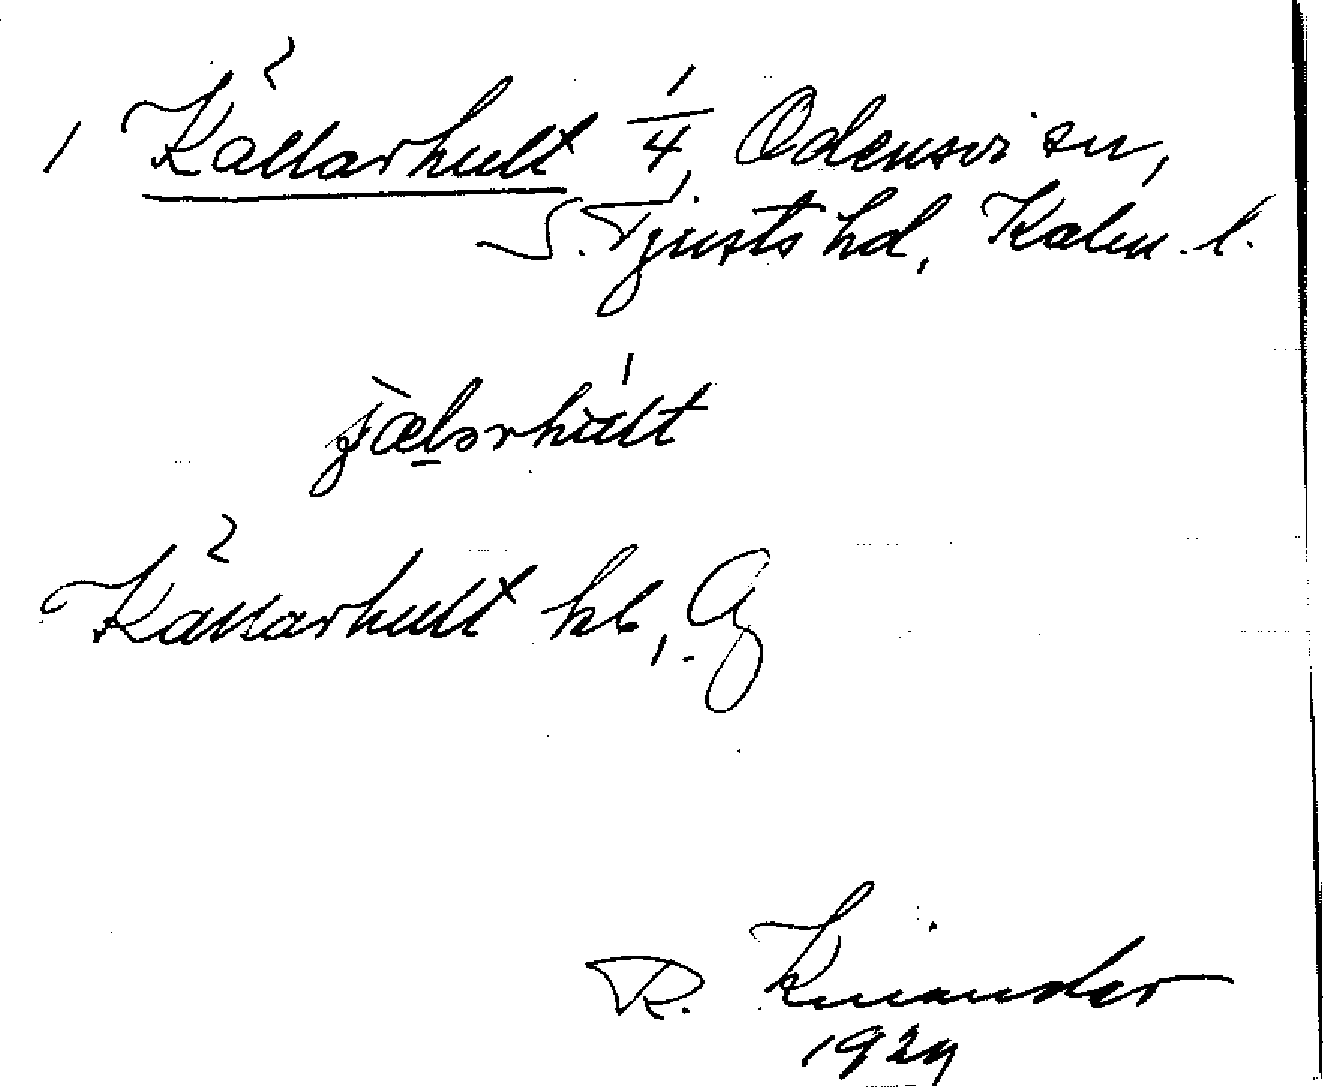 1 Källarhult 1/4, Odensvi sn,
S. Tjusts hd, Kalm. l.
Källarhult kb, G
R. Kinander
1924